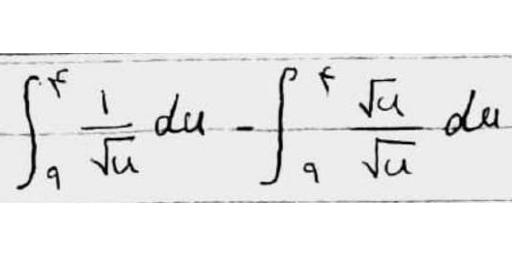 ∫₉^۴ 1/√u du - ∫₉^۴ √u/√u du